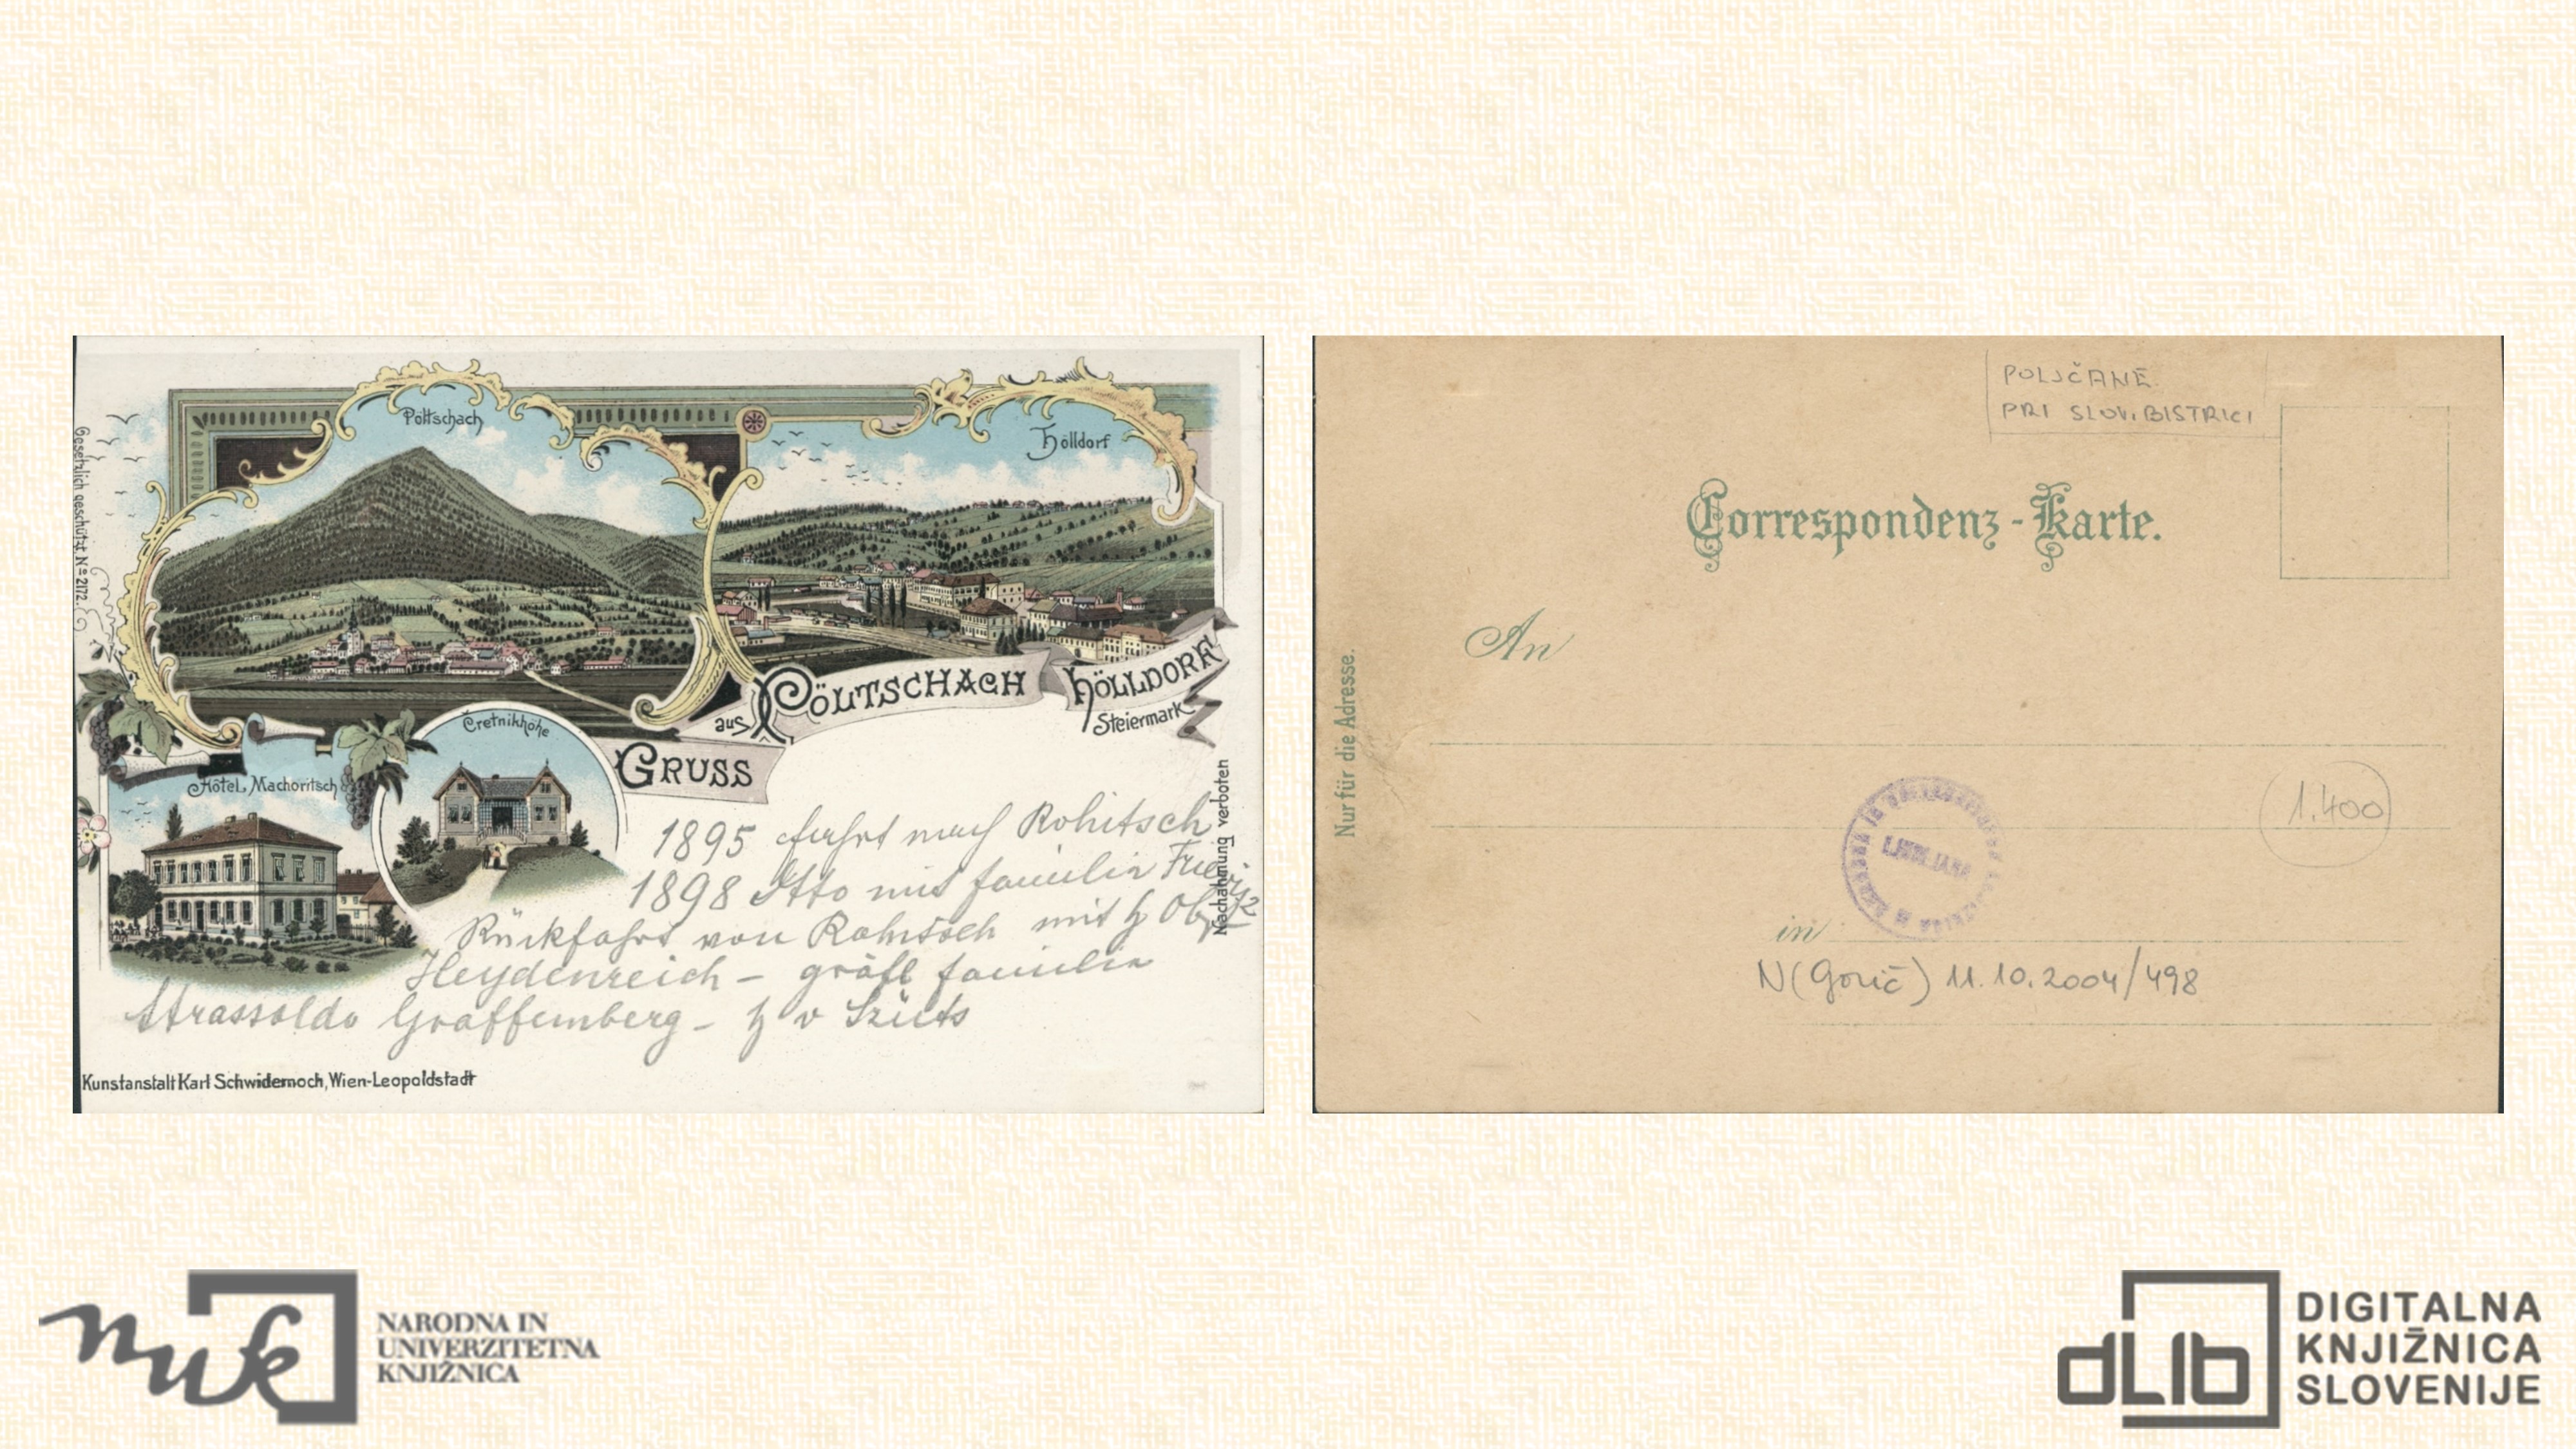 Pöltschach
Hölldorf
Gesetzlich geschützt Nº 2172.
aus PÖLTSCHACH HÖLLDORF
Steiermark
GRUSS
Cretnikhöhe
Hôtel Machoritsch
Nachahmung verboten
1895 fahrt nach Rohitsch
1898 Otto mit familie
Rückfahrt von Rohitsch mit h
Heydenreich – gräfl familie
Strassoldo Graffemberg – h v Szüts
Kunstanstalt Karl Schwidernoch, Wien-Leopoldstadt
POLJČANE
PRI SLOV. BISTRICI
Correspondenz-Karte.
An
Nur für die Adresse.
1.400
LJUBLJANA
in
N(Gorič) 11.10.2004/498
nuk
NARODNA IN
UNIVERZITETNA
KNJIŽNICA
dLIb
DIGITALNA
KNJIŽNICA
SLOVENIJE